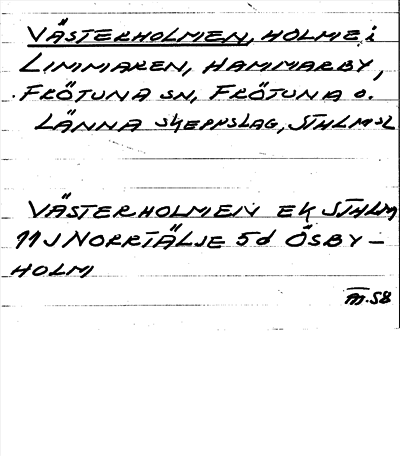 VÄSTERHOLMEN, HOLME i
LIMMAREN, HAMMARBY,
FRÖTUNA SN, FRÖTUNA o.
LÄNNA SKEPPSLAG, STHLMSL
VÄSTERHOLMEN EK STHLM
11J NORRTÄLJE 5d ÖSBY-
HOLM
m.58